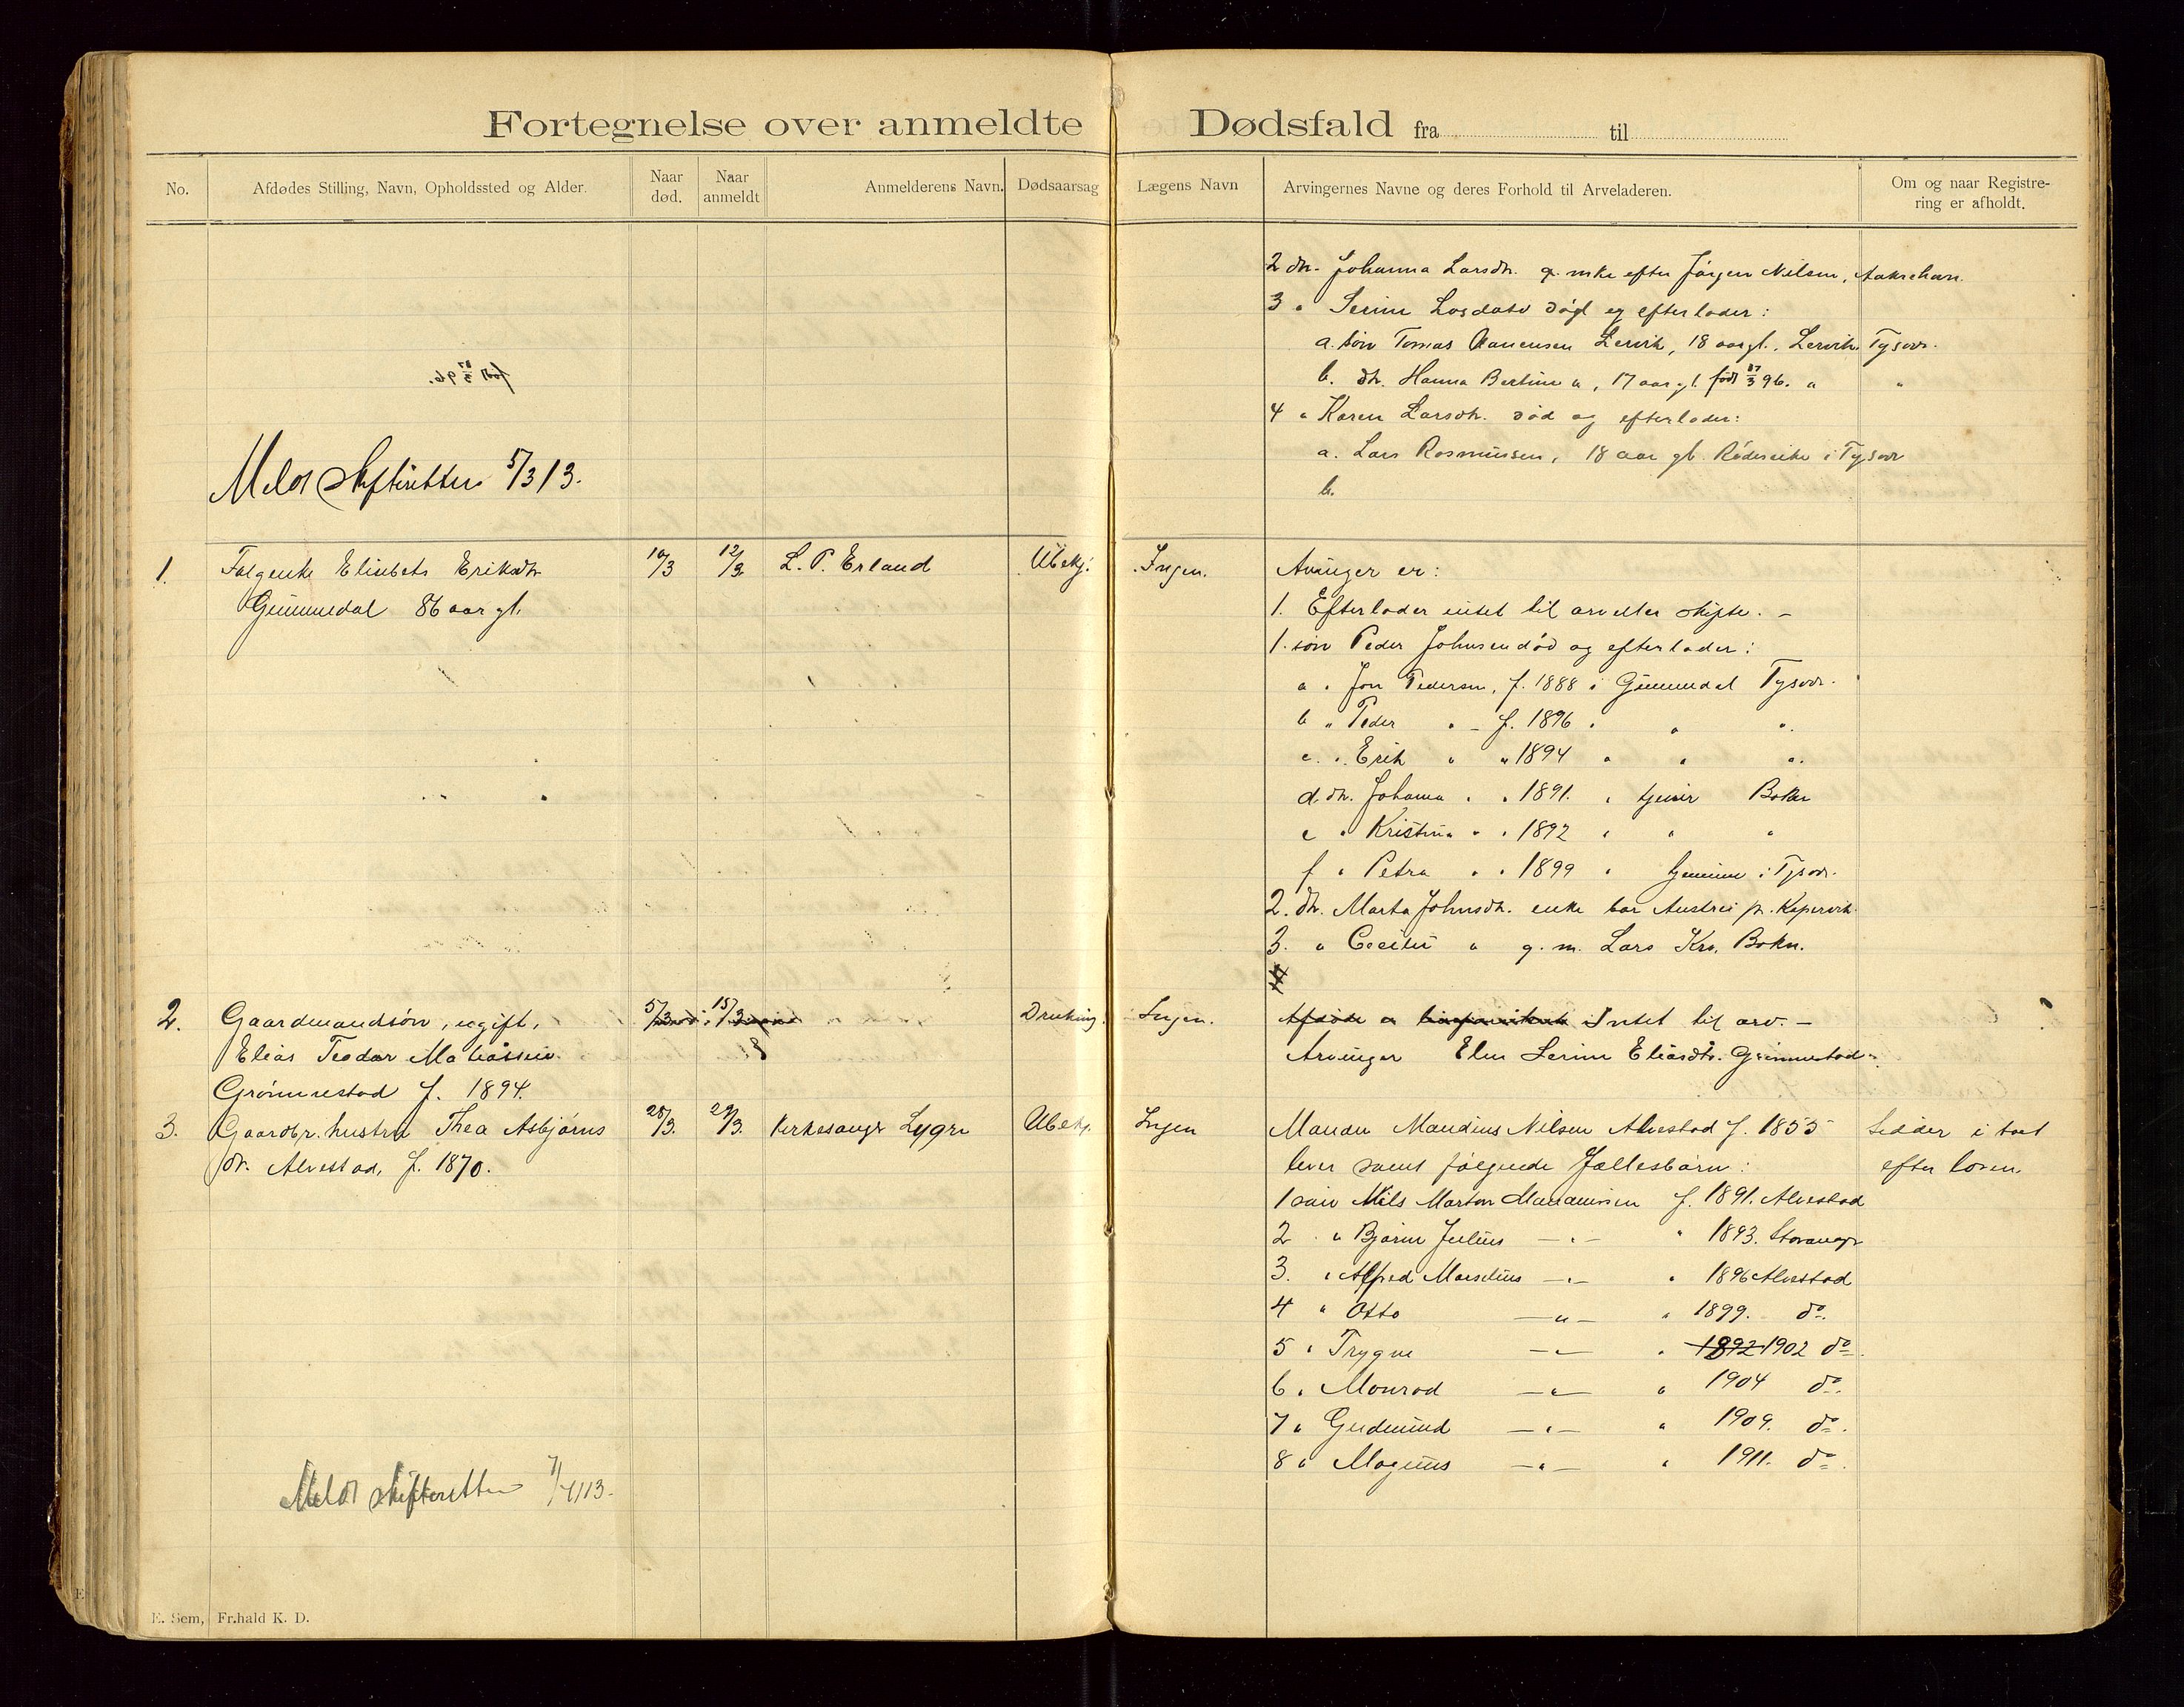 Fortegnelse over anmeldte Dødsfald fra til
No.
Afdødes Stilling, Navn, Opholdssted og Alder.
Naar død.
Naar anmeldt
Anmelderens Navn.
Dødsaarsag
Lægens Navn
Arvingernes Navne og deres Forhold til Arveladeren.
Om og naar Registre-
ring er afholdt.
2 dtr. Johanna Larsdtr. g. enke efter Jørgen Nilsen, Aakrehavn.
3 " Serine død og efterlader:
a. søn Tomas Lervik, 18 aar gl. Lervik Tysvær.
b. dtr. Hanna Bertine ", 17 aar gl. født 3 96. " "
4 " Karen Larsdtr. død og efterlader:
a. Lars Rasmussen, 18 aar gl. i Tysvær
b.
Meldt Skifteretten 5/3 13.
1. Folgenke Elisabets Eriksdtr 10/3 12/3 L. P. Erland Ubekj. Ingen.
86 aar gl.
Arvinger er:
1. Efterlader intet til arv eller skifte. –
1. søn Peder Johnsen død og efterlader:
a " Jon Pedersen, f. 1888 i Tysvær.
b " Peder " – f. 1896 " " "
c. " Erik " " 1894 " " "
d. dtr. Johanna " " 1891. " tjener Bokn
e " Kristina " " 1892 " " "
f " Petra " " 1899 " i Tysvær.
2. dtr. Marta Johnsdtr. enke bor Austrei pr. Kopervik.
3. " Cecilie " g. m. Lars Kro, Bokn.
4
2. Gaardmandsøn, ugift, 5/3 15/3 Drukning. Ingen.
Elias Teodor Matiassen
Grønnestad f. 1894.
Afdøde Intet til arv. –
Arvinger Elen Serine Eliasdtr. Grønnestad.
3. Gaardbr. hustru Thea Asbjørns 28/3. 29/3. Kirkesanger Lygre Ubekj. Ingen
dtr. Alvestad, f. 1870.
Manden Maudius Nilsen Alvestad f. 1853 Sidder i boet
lever samt følgende Fællesbørn: efter loven
1 søn Nils Marton f. 1891. Alvestad
2 " Bjørn Julius – " – " 1893. Stavanger
3. " Alfred Marselius – " – " 1896 Alvestad
4 " Otto – " – " 1899. do.
5 " Trygve – " – " 1892 1902 do.
6 " Monrad – " – " 1904 do.
7 " Gudmund – " – " 1909. do.
8 " Magnus – " – " 1911. do.
Meldt skifteretten 7/4 13.
E. Sem, Fr.hald K. D.